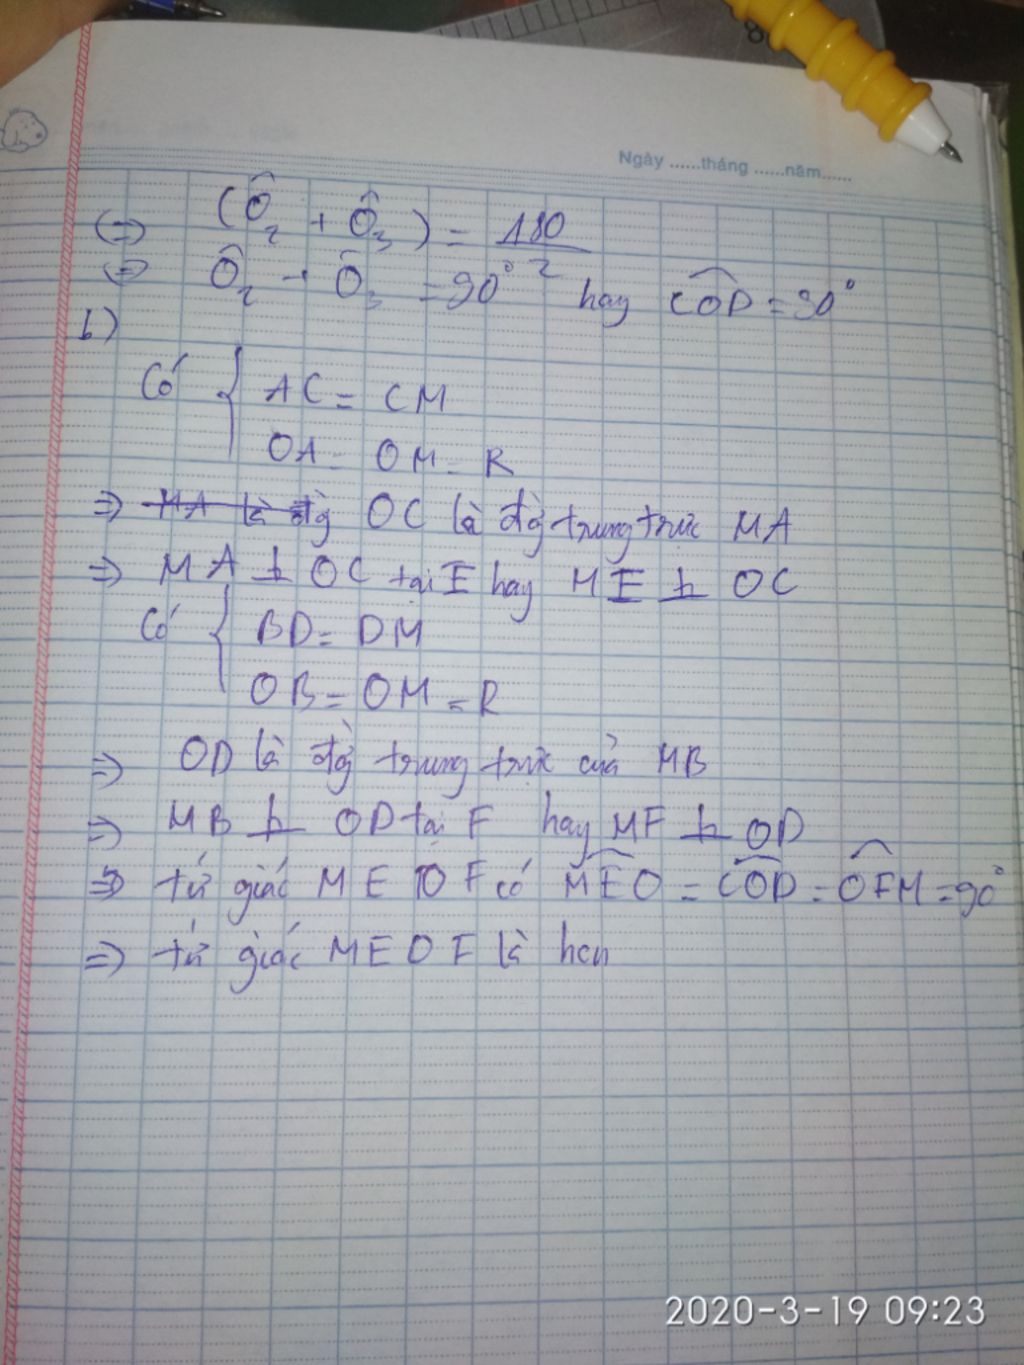 Ngày ......tháng ......năm......
(=) (Ô₂ + Ô₃) = 180/2
(=) Ô₂ + Ô₃ = 90° hay COD = 90°
b)
Có { AC = CM
OA = OM = R
=> MA là đg OC là đg trung trực MA
=> MA ⊥ OC tại E hay ME ⊥ OC
Có { BD = DM
OB = OM = R
=> OD là đg trung trực của MB
=> MB ⊥ OD tại F hay MF ⊥ OD
=> tứ giác MEOF có MEO = COD = OFM = 90°
=> tứ giác MEOF là hcn
2020-3-19 09:23